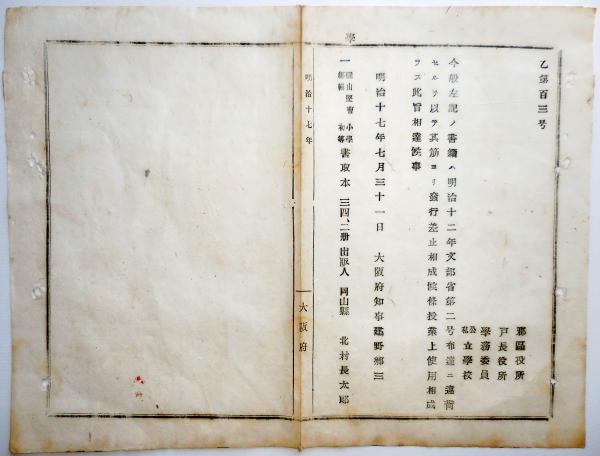 乙第百三号
郡區役所
戸長役所
學務委員
公私立學校
今般左記ノ書籍ハ明治十二年文部省第二号布達ニ違背
セルヲ以テ其筋ヨリ發行差止相成候條授業上使用相成
ラス此旨相達候事
明治十七年七月三十一日 大阪府知事建野郷三
一 小學初等 書取本 三四、二册 出版人 岡山縣 北村長太郎
學
明治十七年
大阪府